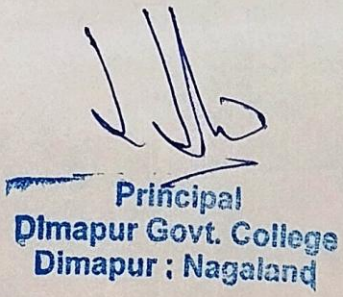 Principal
Dimapur Govt. College
Dimapur : Nagaland